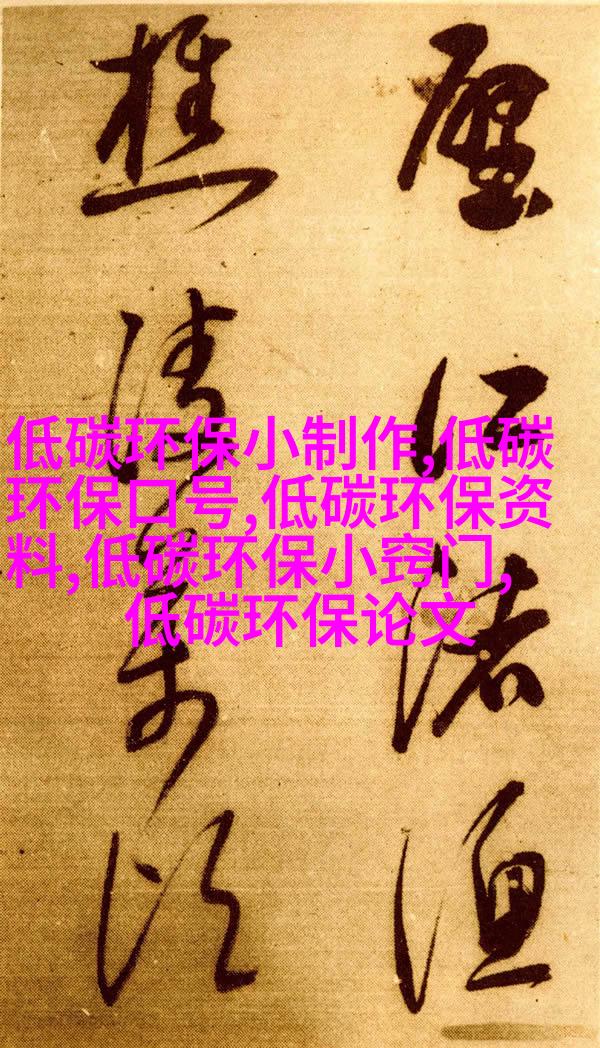 低碳环保小制作,低碳
环保口号,低碳环保资
料,低碳环保小窍门,
低碳环保论文
江渚渔
樵清